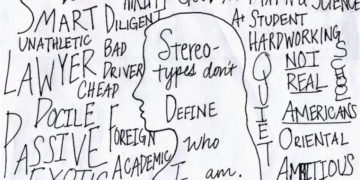 SMART
DILIGENT
UNATHLETIC
BAD
DRIVER
LAWYER
CHEAP
DOCILE
PASSIVE
FOREIGN
ACADEMIC
Stereo-
types don't
DEFINE
Who
I am.
SCIENCE
A+ STUDENT
HARDWORKING
QUIET
NOT
REAL
AMERICANS
ORIENTAL
AMBITIOUS